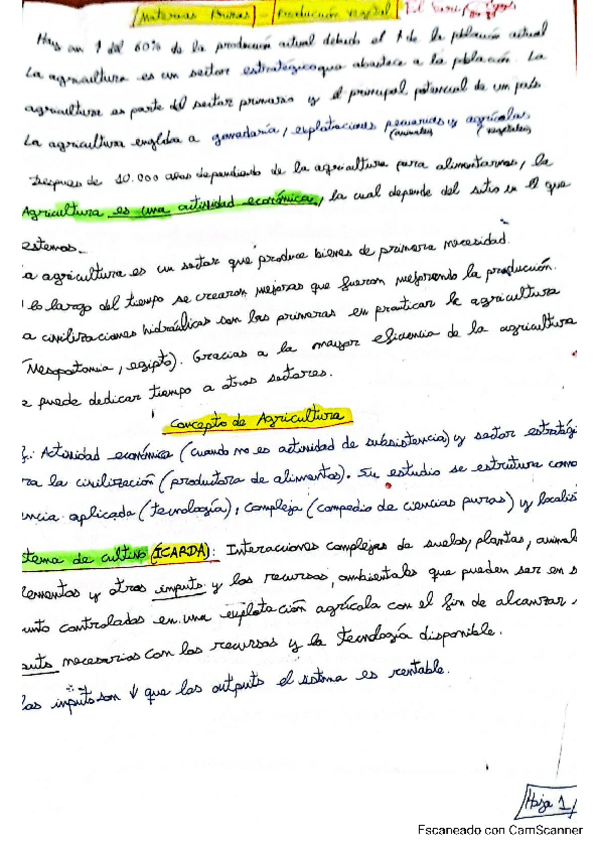 Materias Primas - Producción vegetal
Hay un ↑ del 60% de la producción actual debido al ↑ de la población actual
La agricultura es un sector estratégico que abastece a la población. La
agricultura es parte del sector primario y el principal potencial de un país
La agricultura engloba a ganadaría, explotaciones pecuarias y agrícolas
(animales) (vegetales)
Despues de 10.000 años dependiendo de la agricultura para alimentarnos, la
Agricultura es una actividad económica, la cual depende del sitio en el que
estemos.
a agricultura es un sector que produce bienes de primera necesidad.
lo largo del tiempo se crearon mejoras que fueron mejorando la producción.
a civilizaciones hidraúlicas son las primeras en practicar la agricultura
Mesopotamia, egipto). Gracias a la mayor eficiencia de la agricultura
e puede dedicar tiempo a otros sectores.
Concepto de Agricultura
: Actividad económica (cuando no es actividad de subsistencia) y sector estratég
ra la civilización (productora de alimentos). Su estudio se estrutura como
encia aplicada (tecnología), compleja (compedio de ciencias puras) y localis
stema de cultivo (ICARDA): Interacciones complejas de suelos, plantas, animal
lementos y otros imputs y los recursos, ambientales que pueden ser en s
unto controladas en una explotación agrícola con el fin de alcanzar
puts necesarios con los recursos y la tecnología disponible.
las inputs son ↓ que los outputs el sistema es rentable.
Hoja 1
Escaneado con CamScanner